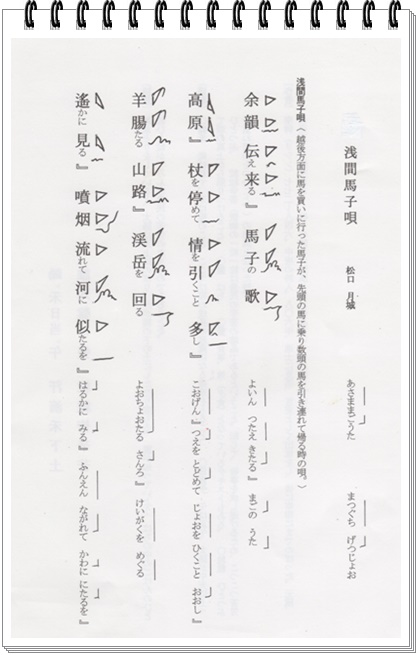 浅間馬子唄　松口　月城
あさままごうた　まつぐち　げつじょお
浅間馬子唄（越後方面に馬を買いに行った馬子が、先頭の馬に乗り数頭の馬を引き連れて帰る時の唄。）
余韻　伝え来る』　馬子の　歌
よいん　つたえ　きたる』　まごの　うた
高原』　杖を停めて　情を引くこと　多し』
こおげん』　つえを　とどめて　じょおを　ひくこと　おおし』
羊腸たる　山路』　渓岳を　回る
よおちょおたる　さんろ』　けいがくを　めぐる
遙かに　見る』　噴烟　流れて　河に　似たるを』
はるかに　みる』　ふんえん　ながれて　かわに　にたるを』